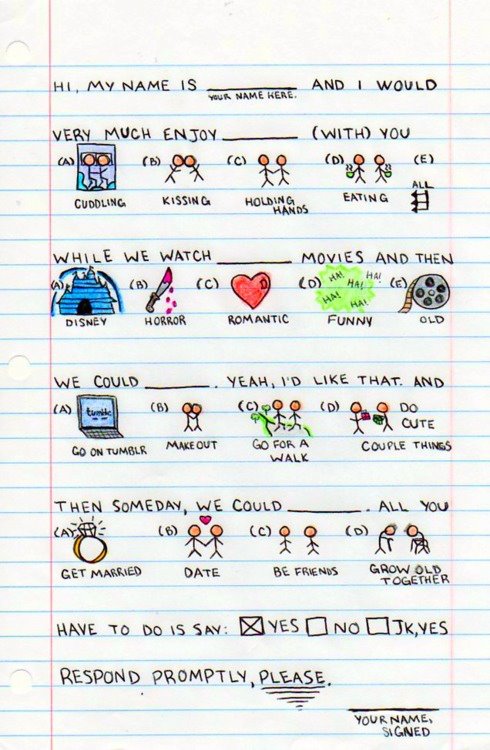 HI, MY NAME IS ________ AND I WOULD
YOUR NAME HERE.
VERY MUCH ENJOY ________ (WITH) YOU
(A) (B) (C) (D) (E)
ALL
CUDDLING KISSING HOLDING HANDS EATING
WHILE WE WATCH ________ MOVIES AND THEN
(A) (B) (C) (D) (E)
HA! HA! HA! HA! HA!
DISNEY HORROR ROMANTIC FUNNY OLD
WE COULD ________. YEAH, I'D LIKE THAT. AND
(A) (B) (C) (D) DO
tumblr. CUTE
GO ON TUMBLR MAKEOUT GO FOR A WALK COUPLE THINGS
THEN SOMEDAY, WE COULD ________. ALL YOU
(A) (B) (C) (D)
GET MARRIED DATE BE FRIENDS GROW OLD TOGETHER
HAVE TO DO IS SAY: ☒ YES ☐ NO ☐ JK, YES
RESPOND PROMPTLY, PLEASE.
YOUR NAME,
SIGNED